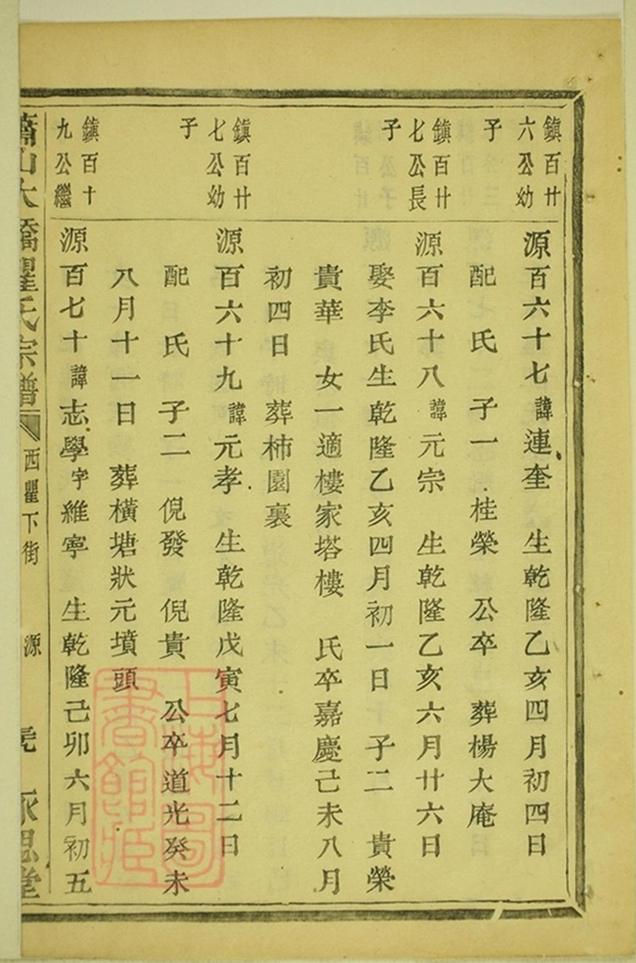 鎮百廿
六公幼
子
源百六十七諱連奎 生乾隆乙亥四月初四日
配 氏 子一 桂榮 公卒 葬楊大庵
鎮百廿
七公長
子
源百六十八諱元宗 生乾隆乙亥六月廿六日
娶李氏生乾隆乙亥四月初一日 子二 貴榮
貴華 女一適樓家塔樓 氏卒嘉慶己未八月
初四日 葬柿園裏
鎮百廿
七公幼
子
源百六十九諱元孝 生乾隆戊寅七月十二日
配 氏 子二 倪發 倪貴 公卒道光癸未
八月十一日 葬橫塘狀元墳頭
鎮百十
九公繼
源百七十諱志學字維寧 生乾隆己卯六月初五
蕭山大橋瞿氏宗譜
西瞿下街
源
永思堂